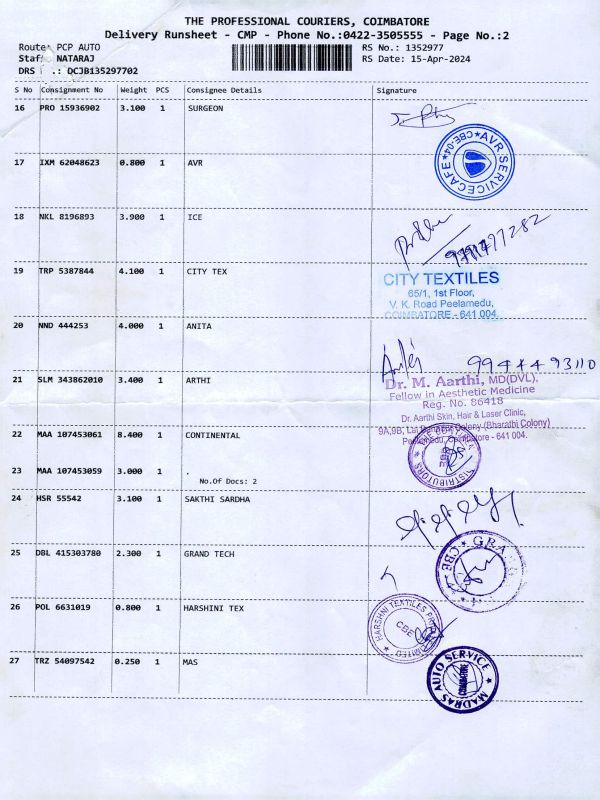 THE PROFESSIONAL COURIERS, COIMBATORE
Delivery Runsheet - CMP - Phone No.:0422-3505555 - Page No.:2
Route: PCP AUTO
RS No.: 1352977
Staff: NATARAJ
RS Date: 15-Apr-2024
DRS .: DCJB135297702
S No Consignment No Weight PCS Consignee Details Signature
16 PRO 15936902 3.100 1 SURGEON
AVR SERVICECAFE CBE-04
17 IXM 62048623 0.800 1 AVR
18 NKL 8196893 3.900 1 ICE
19 TRP 5387844 4.100 1 CITY TEX
CITY TEXTILES
65/1, 1st Floor,
V. K. Road Peelamedu,
COIMBATORE - 641 004.
20 NND 444253 4.000 1 ANITA
99444 93110
21 SLM 343862010 3.400 1 ARTHI
Dr. M. Aarthi, MD(DVL),
Fellow in Aesthetic Medicine
Reg. No. 86418
Dr. Aarthi Skin, Hair & Laser Clinic,
9A,9B, Lal Colony (Bharathi Colony)
Peelamedu, Coimbatore - 641 004.
22 MAA 107453061 8.400 1 CONTINENTAL
DISTRIBUTORS
CBE
23 MAA 107453059 3.000 1 .
No.Of Docs: 2
24 HSR 55542 3.100 1 SAKTHI SARDHA
25 DBL 415303780 2.300 1 GRAND TECH
GRA
CBE
26 POL 6631019 0.800 1 HARSHINI TEX
HARSHNI TEXTILES LIMITED
CBE
27 TRZ 54097542 0.250 1 MAS
MADRAS AUTO SERVICE
COIMBATORE